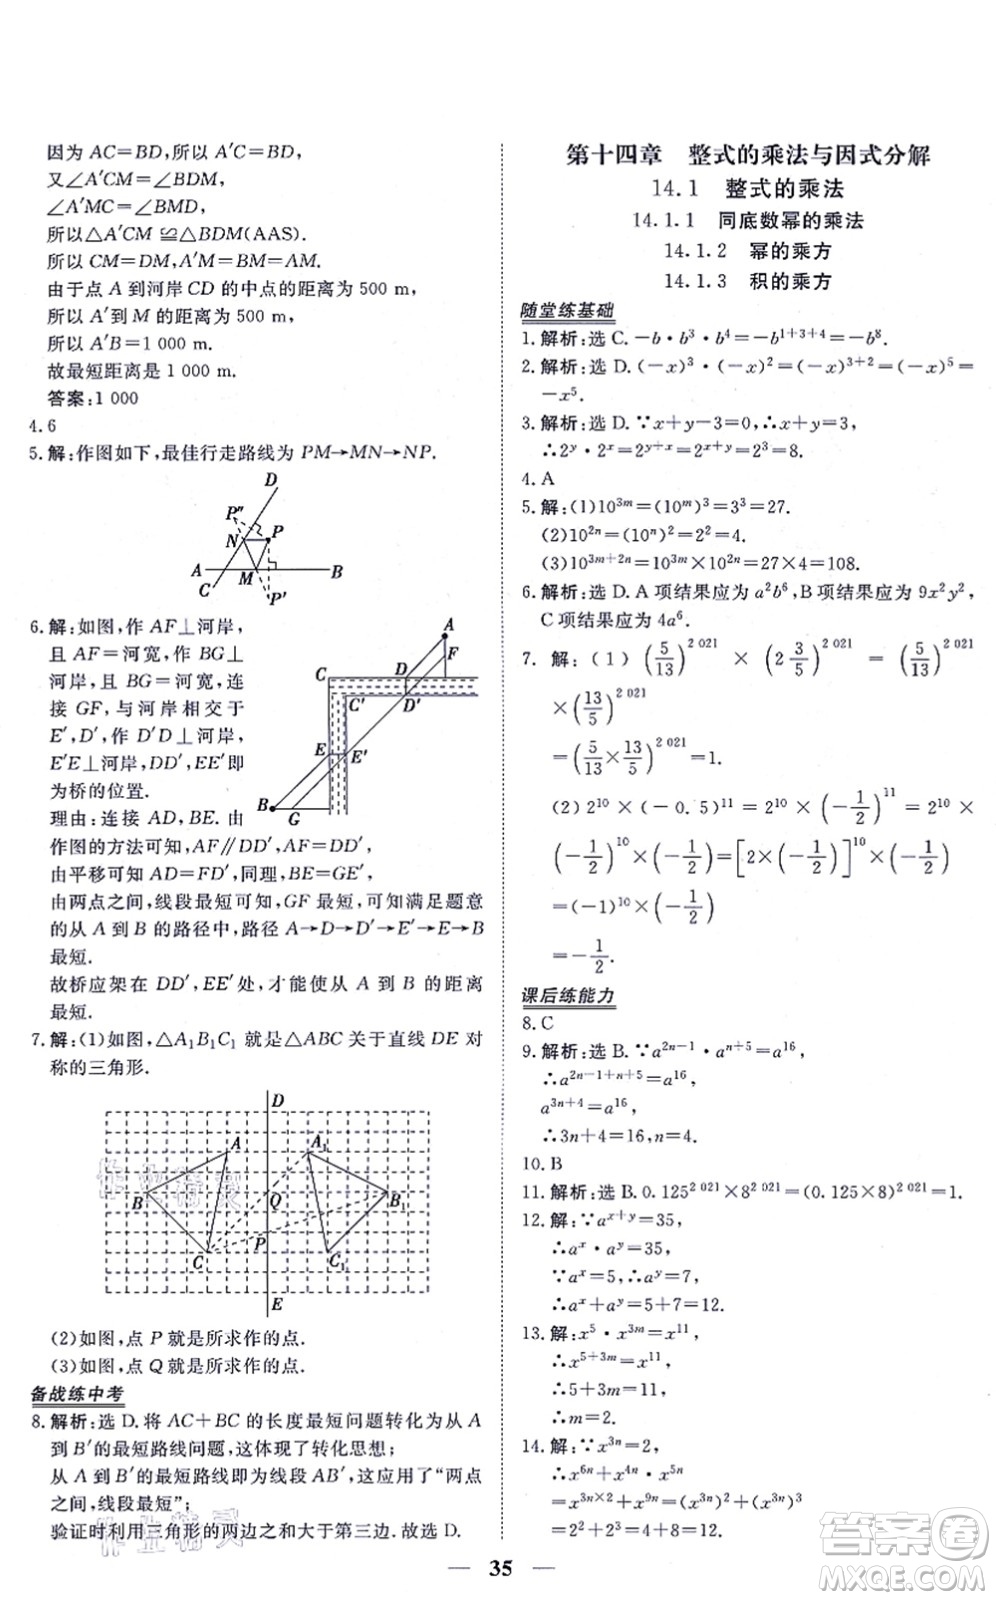 因为 AC=BD,所以 A′C=BD,
又∠A′CM=∠BDM,
∠A′MC=∠BMD,
所以△A′CM≌△BDM(AAS).
所以 CM=DM,A′M=BM=AM.
由于点 A 到河岸 CD 的中点的距离为 500 m,
所以 A′到 M 的距离为 500 m,
所以 A′B=1 000 m.
故最短距离是 1 000 m.
答案:1 000
4.6
5.解:作图如下,最佳行走路线为 PM→MN→NP.
D
P″
N
P
A
M
B
C
P′
6.解:如图,作 AF⊥河岸,
且 AF=河宽,作 BG⊥
河岸,且 BG=河宽,连
接 GF,与河岸相交于
E′,D′,作 D′D⊥河岸,
E′E⊥河岸,DD′,EE′即
为桥的位置.
理由:连接 AD,BE. 由
A
F
C
D
C′
D′
E
E′
B
G
作图的方法可知,AF∥DD′,AF=DD′,
由平移可知 AD=FD′,同理,BE=GE′,
由两点之间,线段最短可知,GF 最短,可知满足题意
的从 A 到 B 的路径中,路径 A→D→D′→E′→E→B
最短.
故桥应架在 DD′,EE′处,才能使从 A 到 B 的距离
最短.
7.解:(1)如图,△A₁B₁C₁ 就是△ABC 关于直线 DE 对
称的三角形.
D
A
A₁
B
Q
B₁
P
C
C₁
E
(2)如图,点 P 就是所求作的点.
(3)如图,点 Q 就是所求作的点.
备战练中考
8.解析:选 D.将 AC+BC 的长度最短问题转化为从 A
到 B′的最短路线问题,这体现了转化思想;
从 A 到 B′的最短路线即为线段 AB′,这应用了“两点
之间,线段最短”;
验证时利用三角形的两边之和大于第三边.故选 D.
第十四章 整式的乘法与因式分解
14.1 整式的乘法
14.1.1 同底数幂的乘法
14.1.2 幂的乘方
14.1.3 积的乘方
随堂练基础
1.解析:选 C.−b·b³·b⁴=−b¹⁺³⁺⁴=−b⁸.
2.解析:选 D.(−x)³·(−x)²=(−x)³⁺²=(−x)⁵=
−x⁵.
3.解析:选 D.∵x+y−3=0,∴x+y=3,
∴2ʸ·2ˣ=2ˣ⁺ʸ=2³=8.
4. A
5.解:(1)10³ᵐ=(10ᵐ)³=3³=27.
(2)10²ⁿ=(10ⁿ)²=2²=4.
(3)10³ᵐ⁺²ⁿ=10³ᵐ×10²ⁿ=27×4=108.
6.解析:选 D.A 项结果应为 a²b⁶,B 项结果应为 9x²y²,
C 项结果应为 4a⁶.
7. 解:(1)(5/13)²⁰²¹×(2 3/5)²⁰²¹=(5/13)²⁰²¹
×(13/5)²⁰²¹
=(5/13×13/5)²⁰²¹=1.
(2)2¹⁰×(−0.5)¹¹=2¹⁰×(−1/2)¹¹=2¹⁰×
(−1/2)¹⁰×(−1/2)=[2×(−1/2)]¹⁰×(−1/2)
=(−1)¹⁰×(−1/2)
=−1/2.
课后练能力
8.C
9.解析:选 B.∵a²ⁿ⁻¹·aⁿ⁺⁵=a¹⁶,
∴a²ⁿ⁻¹⁺ⁿ⁺⁵=a¹⁶,
a³ⁿ⁺⁴=a¹⁶,
∴3n+4=16,n=4.
10. B
11.解析:选 B.0.125²⁰²¹×8²⁰²¹=(0.125×8)²⁰²¹=1.
12.解:∵aˣ⁺ʸ=35,
∴aˣ·aʸ=35,
∵aˣ=5,∴aʸ=7,
∴aˣ+aʸ=5+7=12.
13.解:∵x⁵·x³ᵐ=x¹¹,
∴x⁵⁺³ᵐ=x¹¹,
∴5+3m=11,
∴m=2.
14.解:∵x³ⁿ=2,
∴x⁶ⁿ+x⁴ⁿ·x⁵ⁿ
=x³ⁿˣ²+x⁹ⁿ=(x³ⁿ)²+(x³ⁿ)³
=2²+2³=4+8=12.
35
答案圈
MXQE.COM